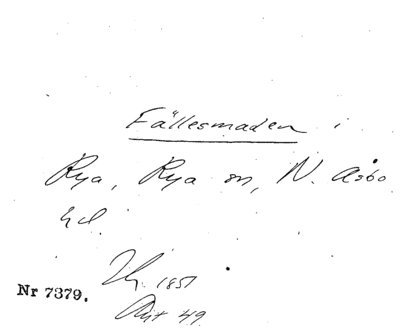 Fällesmaden i
Rya, Rya sn, N. Åsbo
hd.
1851
Nr 7379.
Akt 49